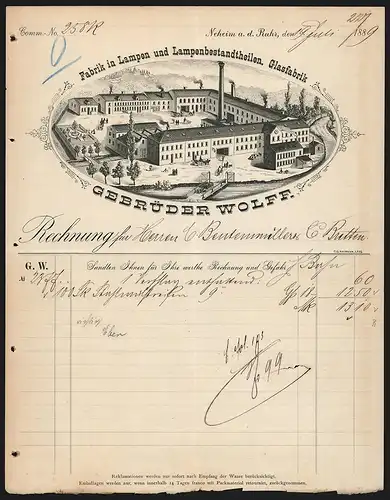 Comm.-No. 258
Neheim a. d. Ruhr, den Juli 1889
Fabrik in Lampen und Lampenbestandtheilen. Glasfabrik
GEBRÜDER WOLFF.
Rechnung für Herren C Beutenmüller & C Bretten
G. W. Sandten Ihnen für Ihre werthe Rechnung und Gefahr
№ 1 Verschlag enthaltend: 60
100 9 12 50
Mk 13 10
Reklamationen werden nur sofort nach Empfang der Waare berücksichtigt.
Emballagen werden nur, wenn innerhalb 14 Tagen franco mit Packmaterial retournirt, zurückgenommen.